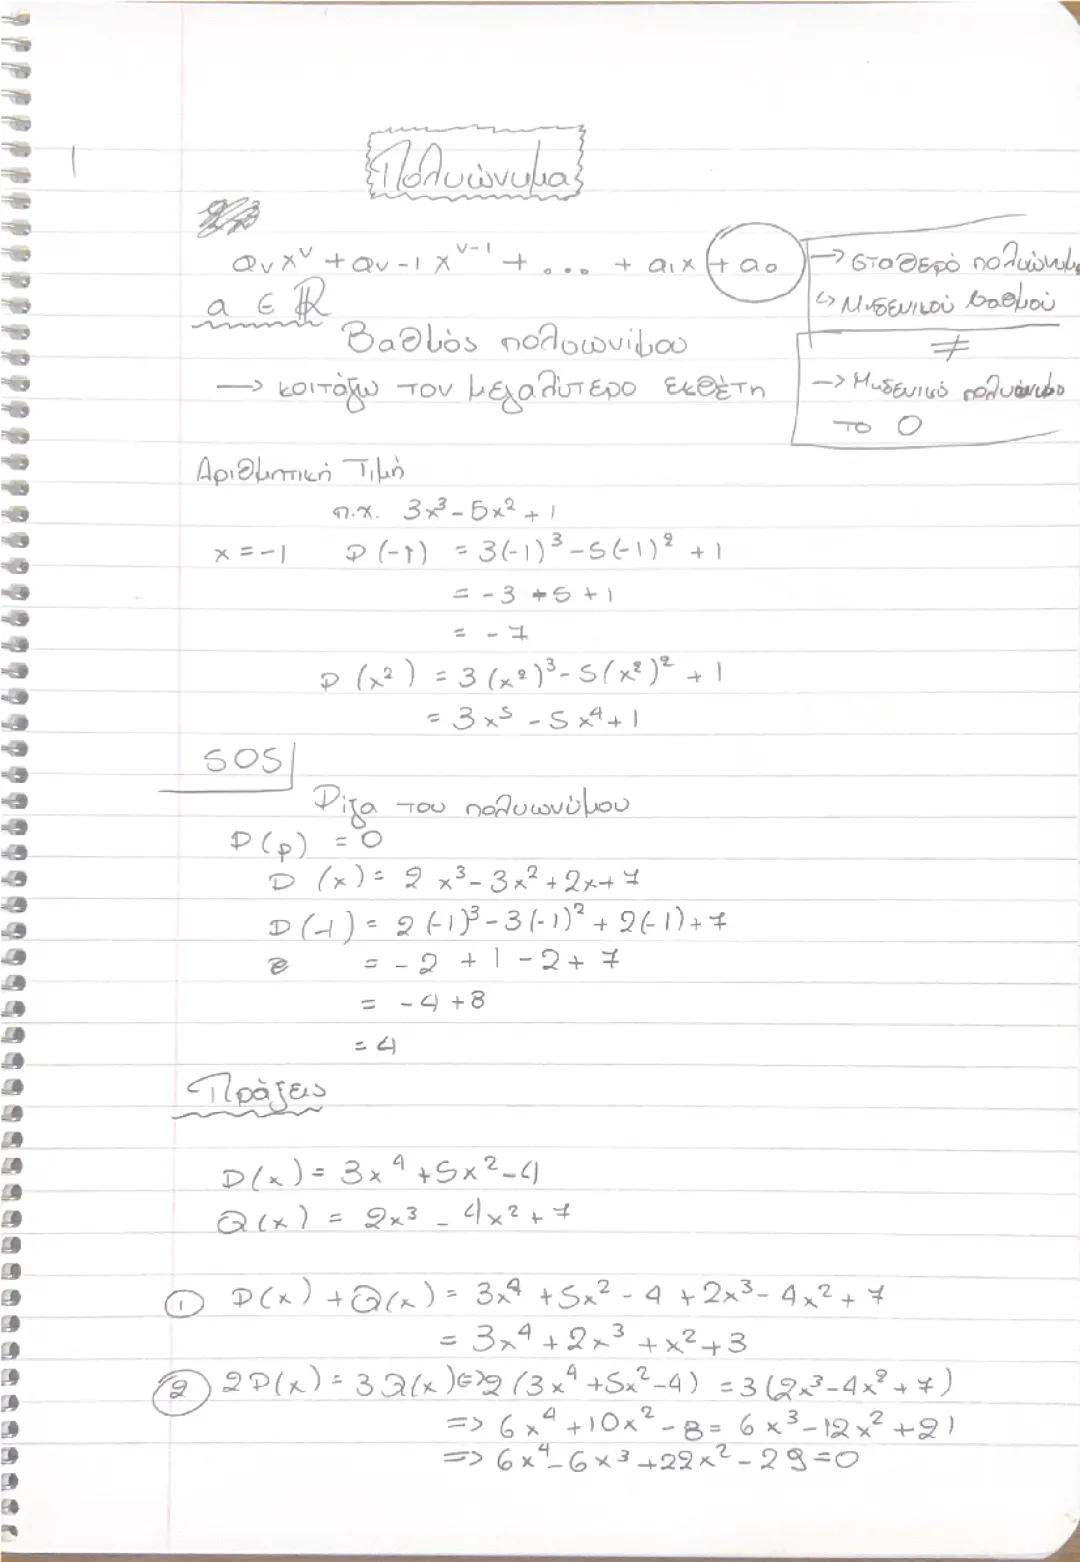 1
Πολυώνυμα
αᵥxᵛ + αᵥ₋₁xᵛ⁻¹ + ... + α₁x + α₀
→ σταθερό πολυώνυμο
↳ Μηδενικού βαθμού
≠
→ Μηδενικό πολυώνυμο
το 0
α ∈ ℝ
Βαθμός πολυωνίμου
→ κοιτάζω τον μεγαλύτερο εκθέτη
Αριθμητική Τιμή
π.χ. 3x³ - 5x² + 1
x = -1 P(-1) = 3(-1)³ - 5(-1)² + 1
= -3 + 5 + 1
= -7
P(x²) = 3(x²)³ - 5(x²)² + 1
= 3x⁵ - 5x⁴ + 1
SOS
Ρίζα του πολυωνύμου
P(ρ) = 0
P(x) = 2x³ - 3x² + 2x + 7
P(-1) = 2(-1)³ - 3(-1)² + 2(-1) + 7
= -2 + 1 - 2 + 7
= -4 + 8
= 4
Πράξεις
P(x) = 3x⁴ + 5x² - 4
Q(x) = 2x³ - 4x² + 7
① P(x) + Q(x) = 3x⁴ + 5x² - 4 + 2x³ - 4x² + 7
= 3x⁴ + 2x³ + x² + 3
② 2P(x) = 3Q(x) <=> 2(3x⁴ + 5x² - 4) = 3(2x³ - 4x² + 7)
=> 6x⁴ + 10x² - 8 = 6x³ - 12x² + 21
=> 6x⁴ - 6x³ + 22x² - 29 = 0